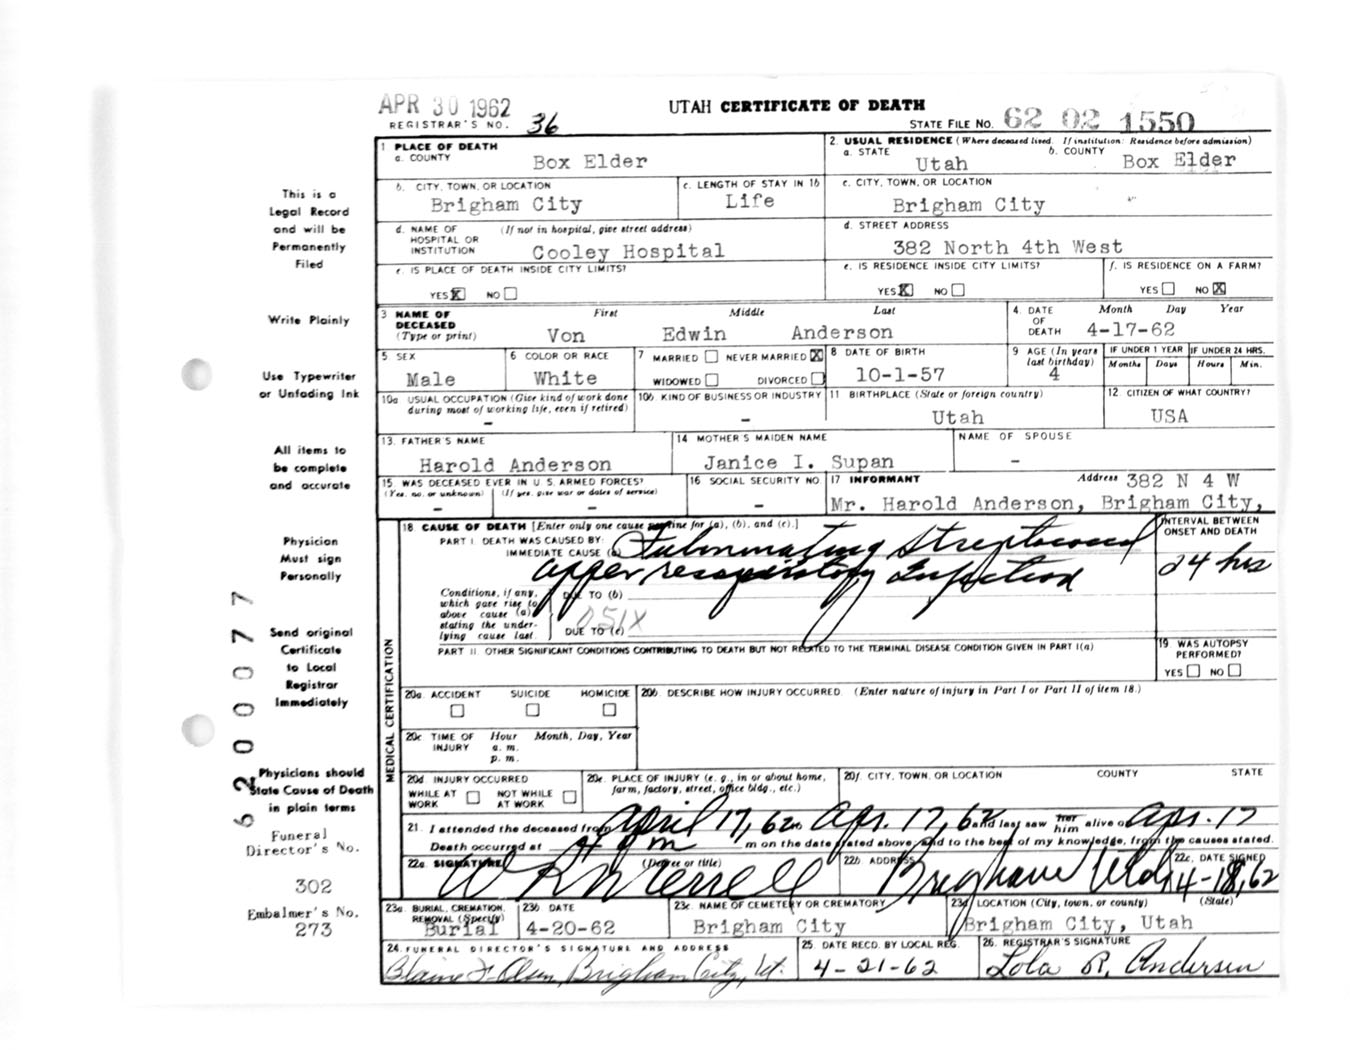 APR 30 1962
UTAH CERTIFICATE OF DEATH
REGISTRAR'S NO. 36
STATE FILE NO. 62 02 1550
1 PLACE OF DEATH
a. COUNTY Box Elder
2. USUAL RESIDENCE (Where deceased lived. If institution: Residence before admission)
a. STATE Utah b. COUNTY Box Elder
b. CITY, TOWN, OR LOCATION Brigham City
c. LENGTH OF STAY IN 1b Life
c. CITY, TOWN, OR LOCATION Brigham City
d. NAME OF HOSPITAL OR INSTITUTION (If not in hospital, give street address) Cooley Hospital
d. STREET ADDRESS 382 North 4th West
e. IS PLACE OF DEATH INSIDE CITY LIMITS?
YES X NO
e. IS RESIDENCE INSIDE CITY LIMITS?
YES X NO
f. IS RESIDENCE ON A FARM?
YES NO X
3 NAME OF DECEASED (Type or print)
First Middle Last
Von Edwin Anderson
4. DATE OF DEATH Month Day Year
4-17-62
5 SEX Male
6 COLOR OR RACE White
7 MARRIED NEVER MARRIED X
WIDOWED DIVORCED
8 DATE OF BIRTH 10-1-57
9 AGE (In years last birthday) 4
IF UNDER 1 YEAR Months Days
IF UNDER 24 HRS. Hours Min.
10a USUAL OCCUPATION (Give kind of work done during most of working life, even if retired) -
10b. KIND OF BUSINESS OR INDUSTRY -
11 BIRTHPLACE (State or foreign country) Utah
12. CITIZEN OF WHAT COUNTRY? USA
13. FATHER'S NAME Harold Anderson
14 MOTHER'S MAIDEN NAME Janice I. Supan
NAME OF SPOUSE -
15. WAS DECEASED EVER IN U. S. ARMED FORCES?
(Yes, no, or unknown) - (If yes, give war or dates of service) -
16 SOCIAL SECURITY NO. -
17 INFORMANT Address 382 N 4 W
Mr. Harold Anderson, Brigham City,
18. CAUSE OF DEATH [Enter only one cause per line for (a), (b), and (c).]
PART I. DEATH WAS CAUSED BY:
IMMEDIATE CAUSE (a) Fulminating Streptococcal
upper respiratory Infection
INTERVAL BETWEEN ONSET AND DEATH
24 hrs
Conditions, if any, which gave rise to above cause (a) stating the underlying cause last.
DUE TO (b)
051X
DUE TO (c)
PART II. OTHER SIGNIFICANT CONDITIONS CONTRIBUTING TO DEATH BUT NOT RELATED TO THE TERMINAL DISEASE CONDITION GIVEN IN PART I(a)
19. WAS AUTOPSY PERFORMED?
YES NO
20a. ACCIDENT SUICIDE HOMICIDE
20b. DESCRIBE HOW INJURY OCCURRED. (Enter nature of injury in Part I or Part II of item 18.)
20c TIME OF INJURY Hour a. m. p. m. Month, Day, Year
20d. INJURY OCCURRED
WHILE AT WORK NOT WHILE AT WORK
20e. PLACE OF INJURY (e. g., in or about home, farm, factory, street, office bldg., etc.)
20f. CITY, TOWN, OR LOCATION COUNTY STATE
21. I attended the deceased from April 17, 62 to Apr. 17, 62 and last saw her him alive on Apr. 17
Death occurred at 4 pm m on the date stated above, and to the best of my knowledge, from the causes stated.
22a. SIGNATURE (Degree or title)
22b ADDRESS Brigham
22c. DATE SIGNED 4-18, 62
23a. BURIAL, CREMATION, REMOVAL (Specify) Burial
23b DATE 4-20-62
23c. NAME OF CEMETERY OR CREMATORY Brigham City
23d LOCATION (City, town, or county) (State)
Brigham City, Utah
24. FUNERAL DIRECTOR'S SIGNATURE AND ADDRESS
Blaine F. Olsen, Brigham City, Ut.
25. DATE RECD. BY LOCAL REG. 4-21-62
26. REGISTRAR'S SIGNATURE Lola R. Andersen
MEDICAL CERTIFICATION
This is a
Legal Record
and will be
Permanently
Filed
Write Plainly
Use Typewriter
or Unfading Ink
All items to
be complete
and accurate
Physician
Must sign
Personally
Send original
Certificate
to Local
Registrar
Immediately
Physicians should
State Cause of Death
in plain terms
Funeral
Director's No.
302
Embalmer's No.
273
6200077